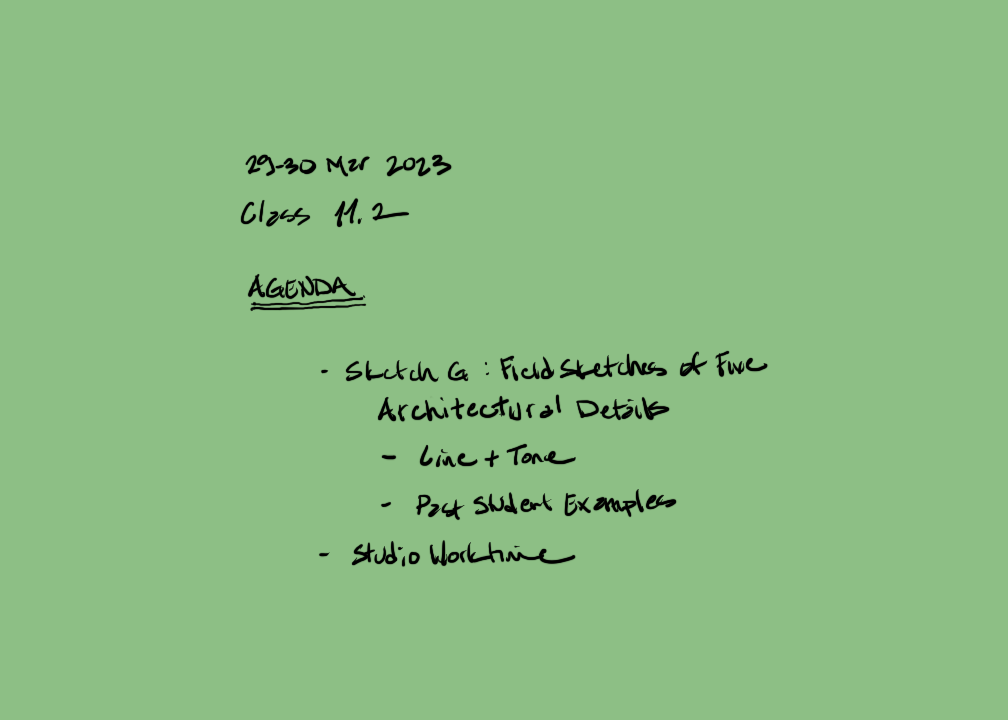 29-30 Mar 2023
Class 11.2
AGENDA
- Sketch G : Field Sketches of Five
Architectural Details
- Line + Tone
- Past Student Examples
- Studio Worktime